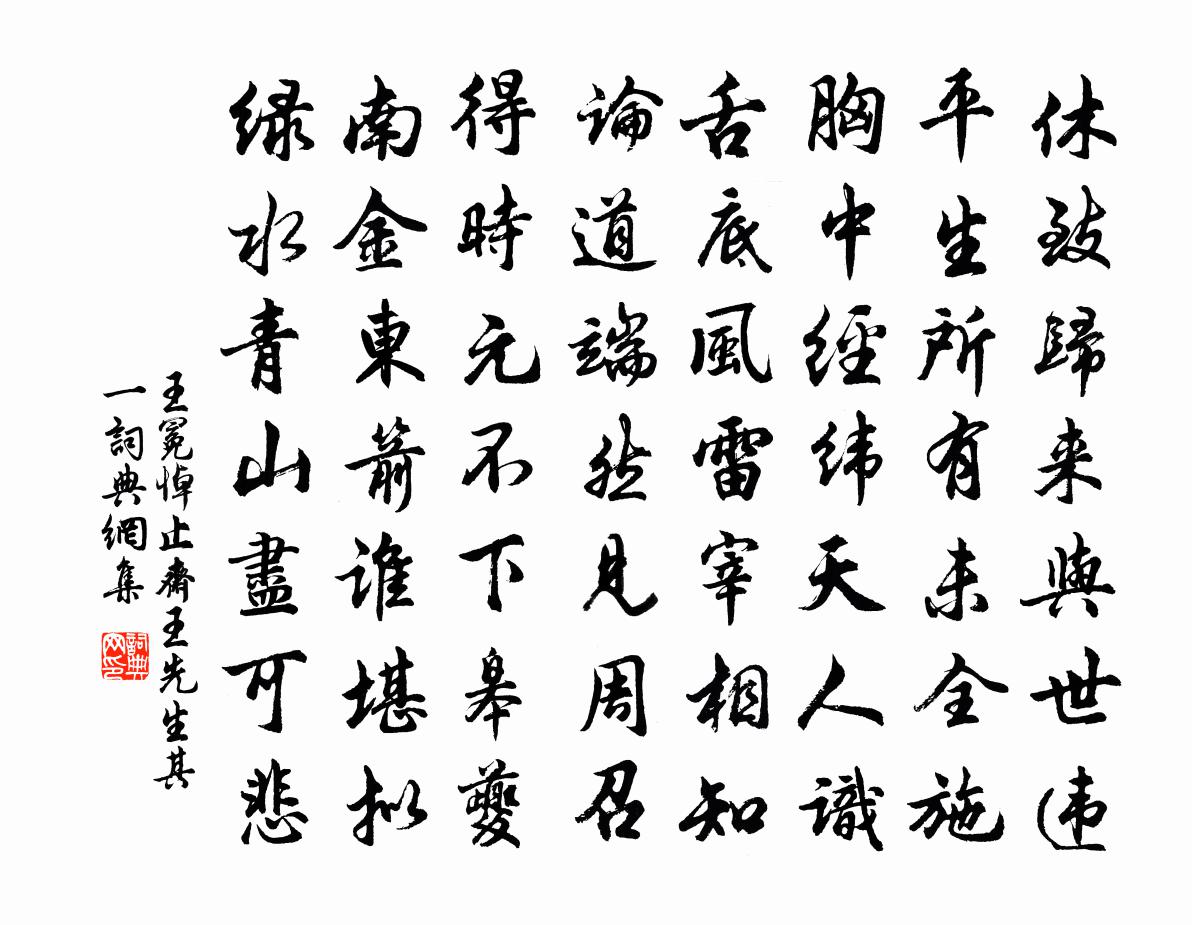 休致歸来與世违
平生所有未全施
胸中經纬天人識
舌底風雷宰相知
論道端然見周召
得時元不下皋夔
南金東箭谁堪拟
绿水青山盡可悲
王冕悼止齋王先生其
一詞典網集
詞典网印